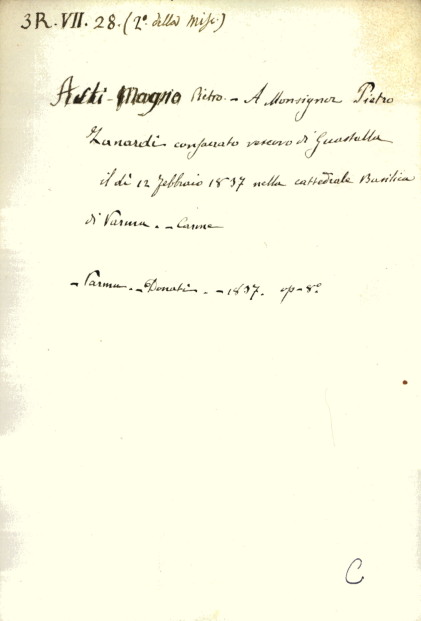 3R. VII. 28. (2º della Misc.)
Asti-Magno Pietro. - A Monsignor Pietro
Zanardi consacrato vescovo di Guastalla
il dì 12 febbraio 1837 nella cattedrale Basilica
di Parma. - Carme
- Parma. - Donati. - 1837. op-8º
C